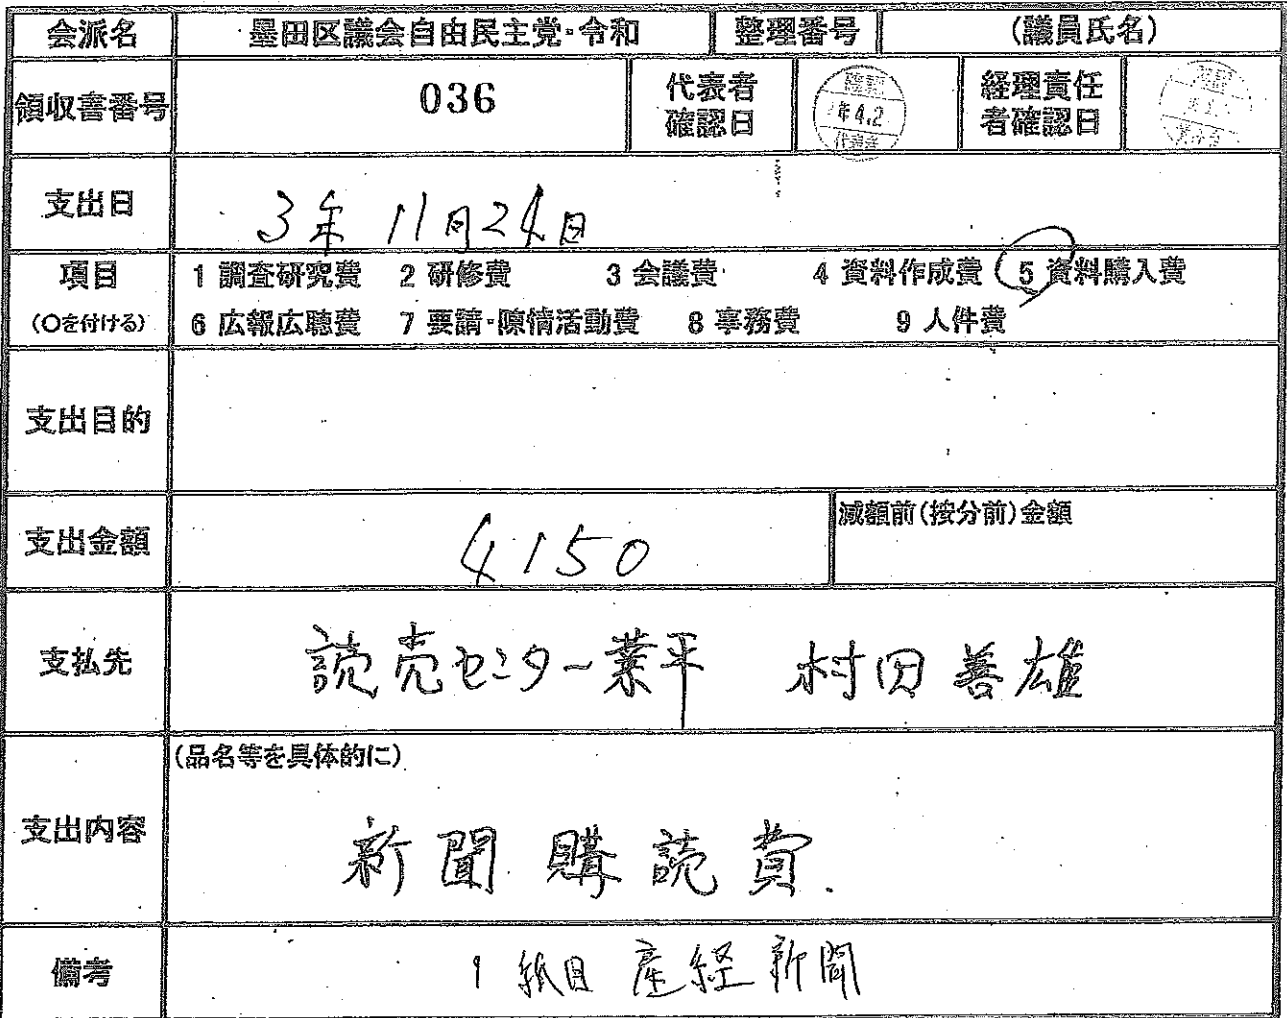 会派名 墨田区議会自由民主党・令和 整理番号 (議員氏名)
領収書番号 036 代表者確認日 確認 年4.2 代表者 経理責任者確認日
支出日 3年 11月24日
項目 1 調査研究費 2 研修費 3 会議費 4 資料作成費 5 資料購入費
(○を付ける) 6 広報広聴費 7 要請・陳情活動費 8 事務費 9 人件費
支出目的
支出金額 4150 減額前(按分前)金額
支払先 読売センター業平 村田善雄
(品名等を具体的に)
支出内容 新聞購読費.
備考 1紙目 産経新聞